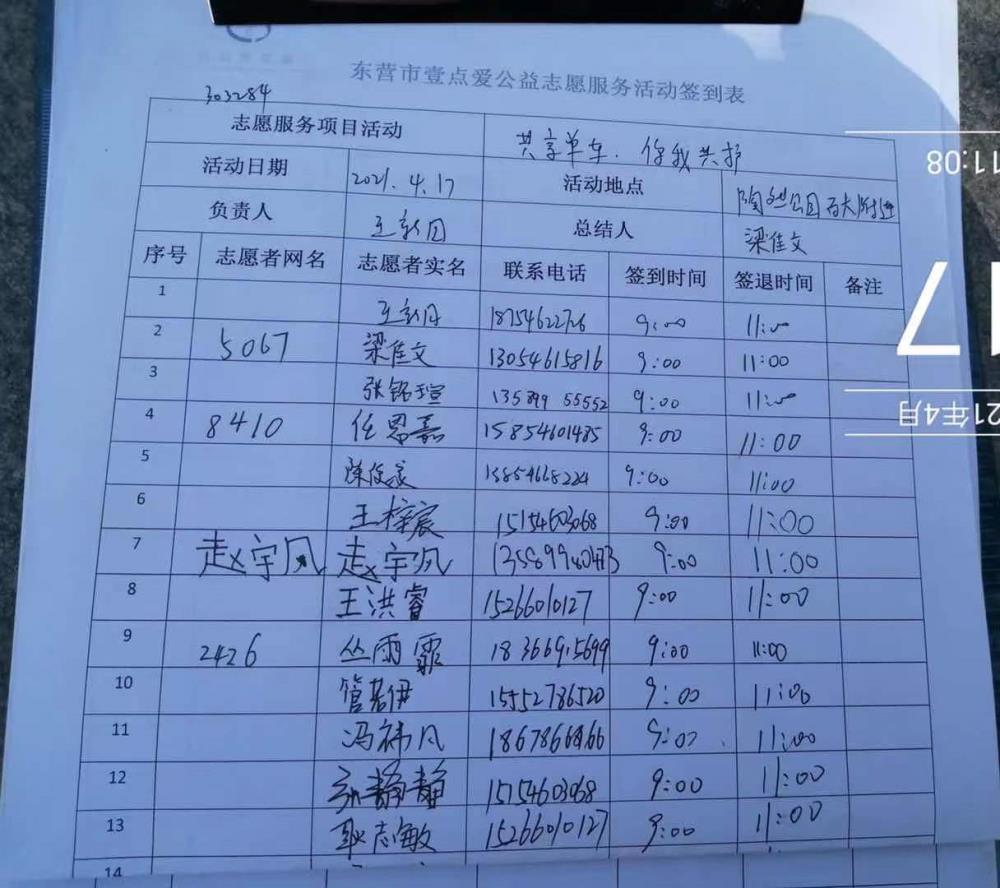 东营市壹点爱公益志愿服务活动签到表
303284
志愿服务项目活动 共享单车．你我共护
活动日期 2021.4.17 活动地点 陶然公园百大附近
负责人 王新月 总结人 梁佳文
序号 志愿者网名 志愿者实名 联系电话 签到时间 签退时间 备注
1 王新月 18754622726 9:00 11:00
2 5067 梁佳文 13054615816 9:00 11:00
3 张铭瑄 135899 55552 9:00 11:00
4 8410 任思嘉 15854601485 9:00 11:00
5 13854668224 9:00 11:00
6 王梓宸 15154603068 9:00 11:00
7 赵宇风 赵宇风 9:00 11:00
8 王洪睿 15266010127 9:00 11:00
9 2426 丛雨霏 18366915699 9:00 11:00
10 管若伊 15552786520 9:00 11:00
11 冯祎凡 18678668166 9:00 11:00
12 孙静静 15154603068 9:00 11:00
13 耿志敏 15266010127 9:00 11:00
14
11:08
17
21年4月